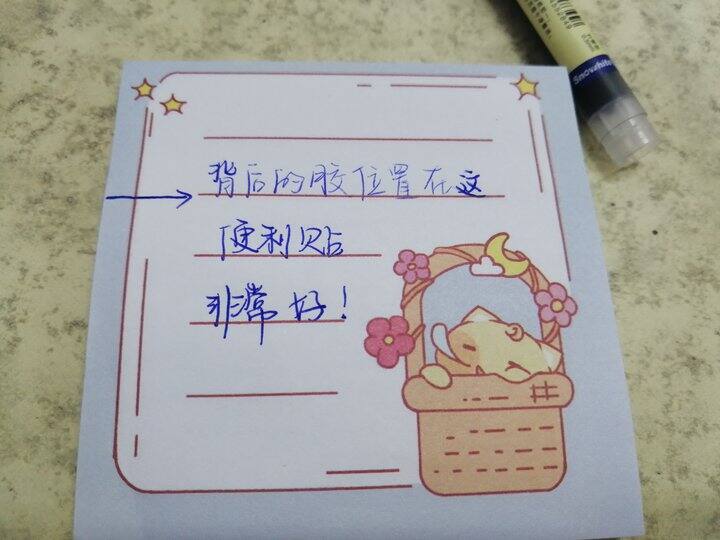 背后的胶位置在这
便利贴
非常好！
Snowhite